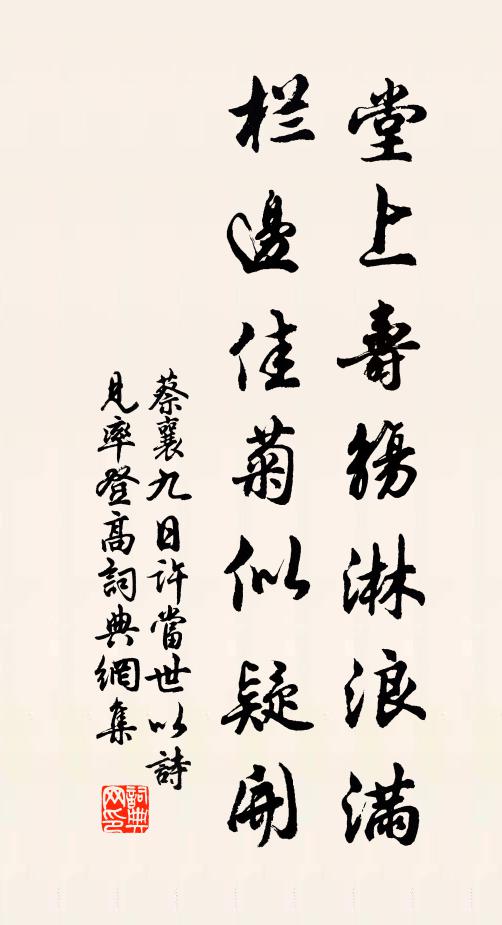 堂上壽觴淋浪滿
栏邊佳菊似疑開
蔡襄九日許當世以詩
見率登高詞典網集
詞典网印